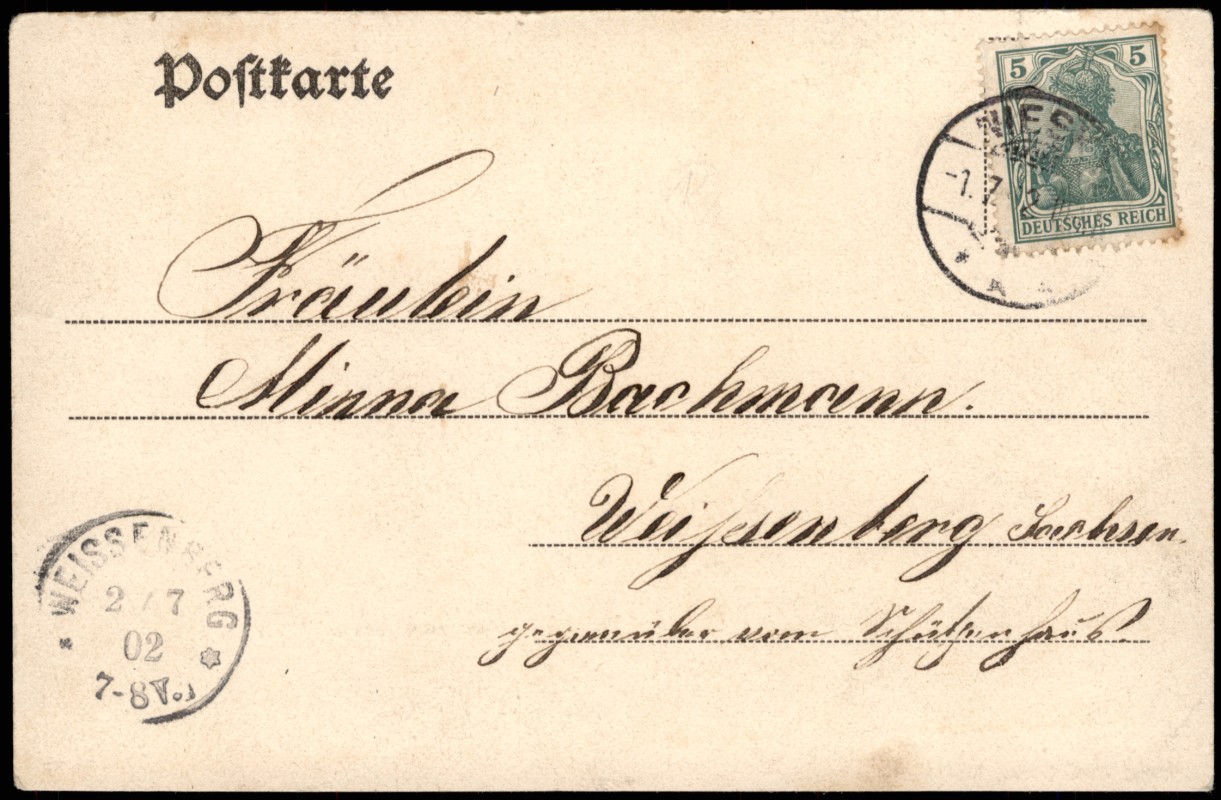 Postkarte
5 5
DEUTSCHES REICH
-1.7.
Fräulein
Minna Bachmann.
Weißenberg Sachsen.
gegenüber vom Schützenhaus.
WEISSENBERG
2 / 7
02
7-8 V.